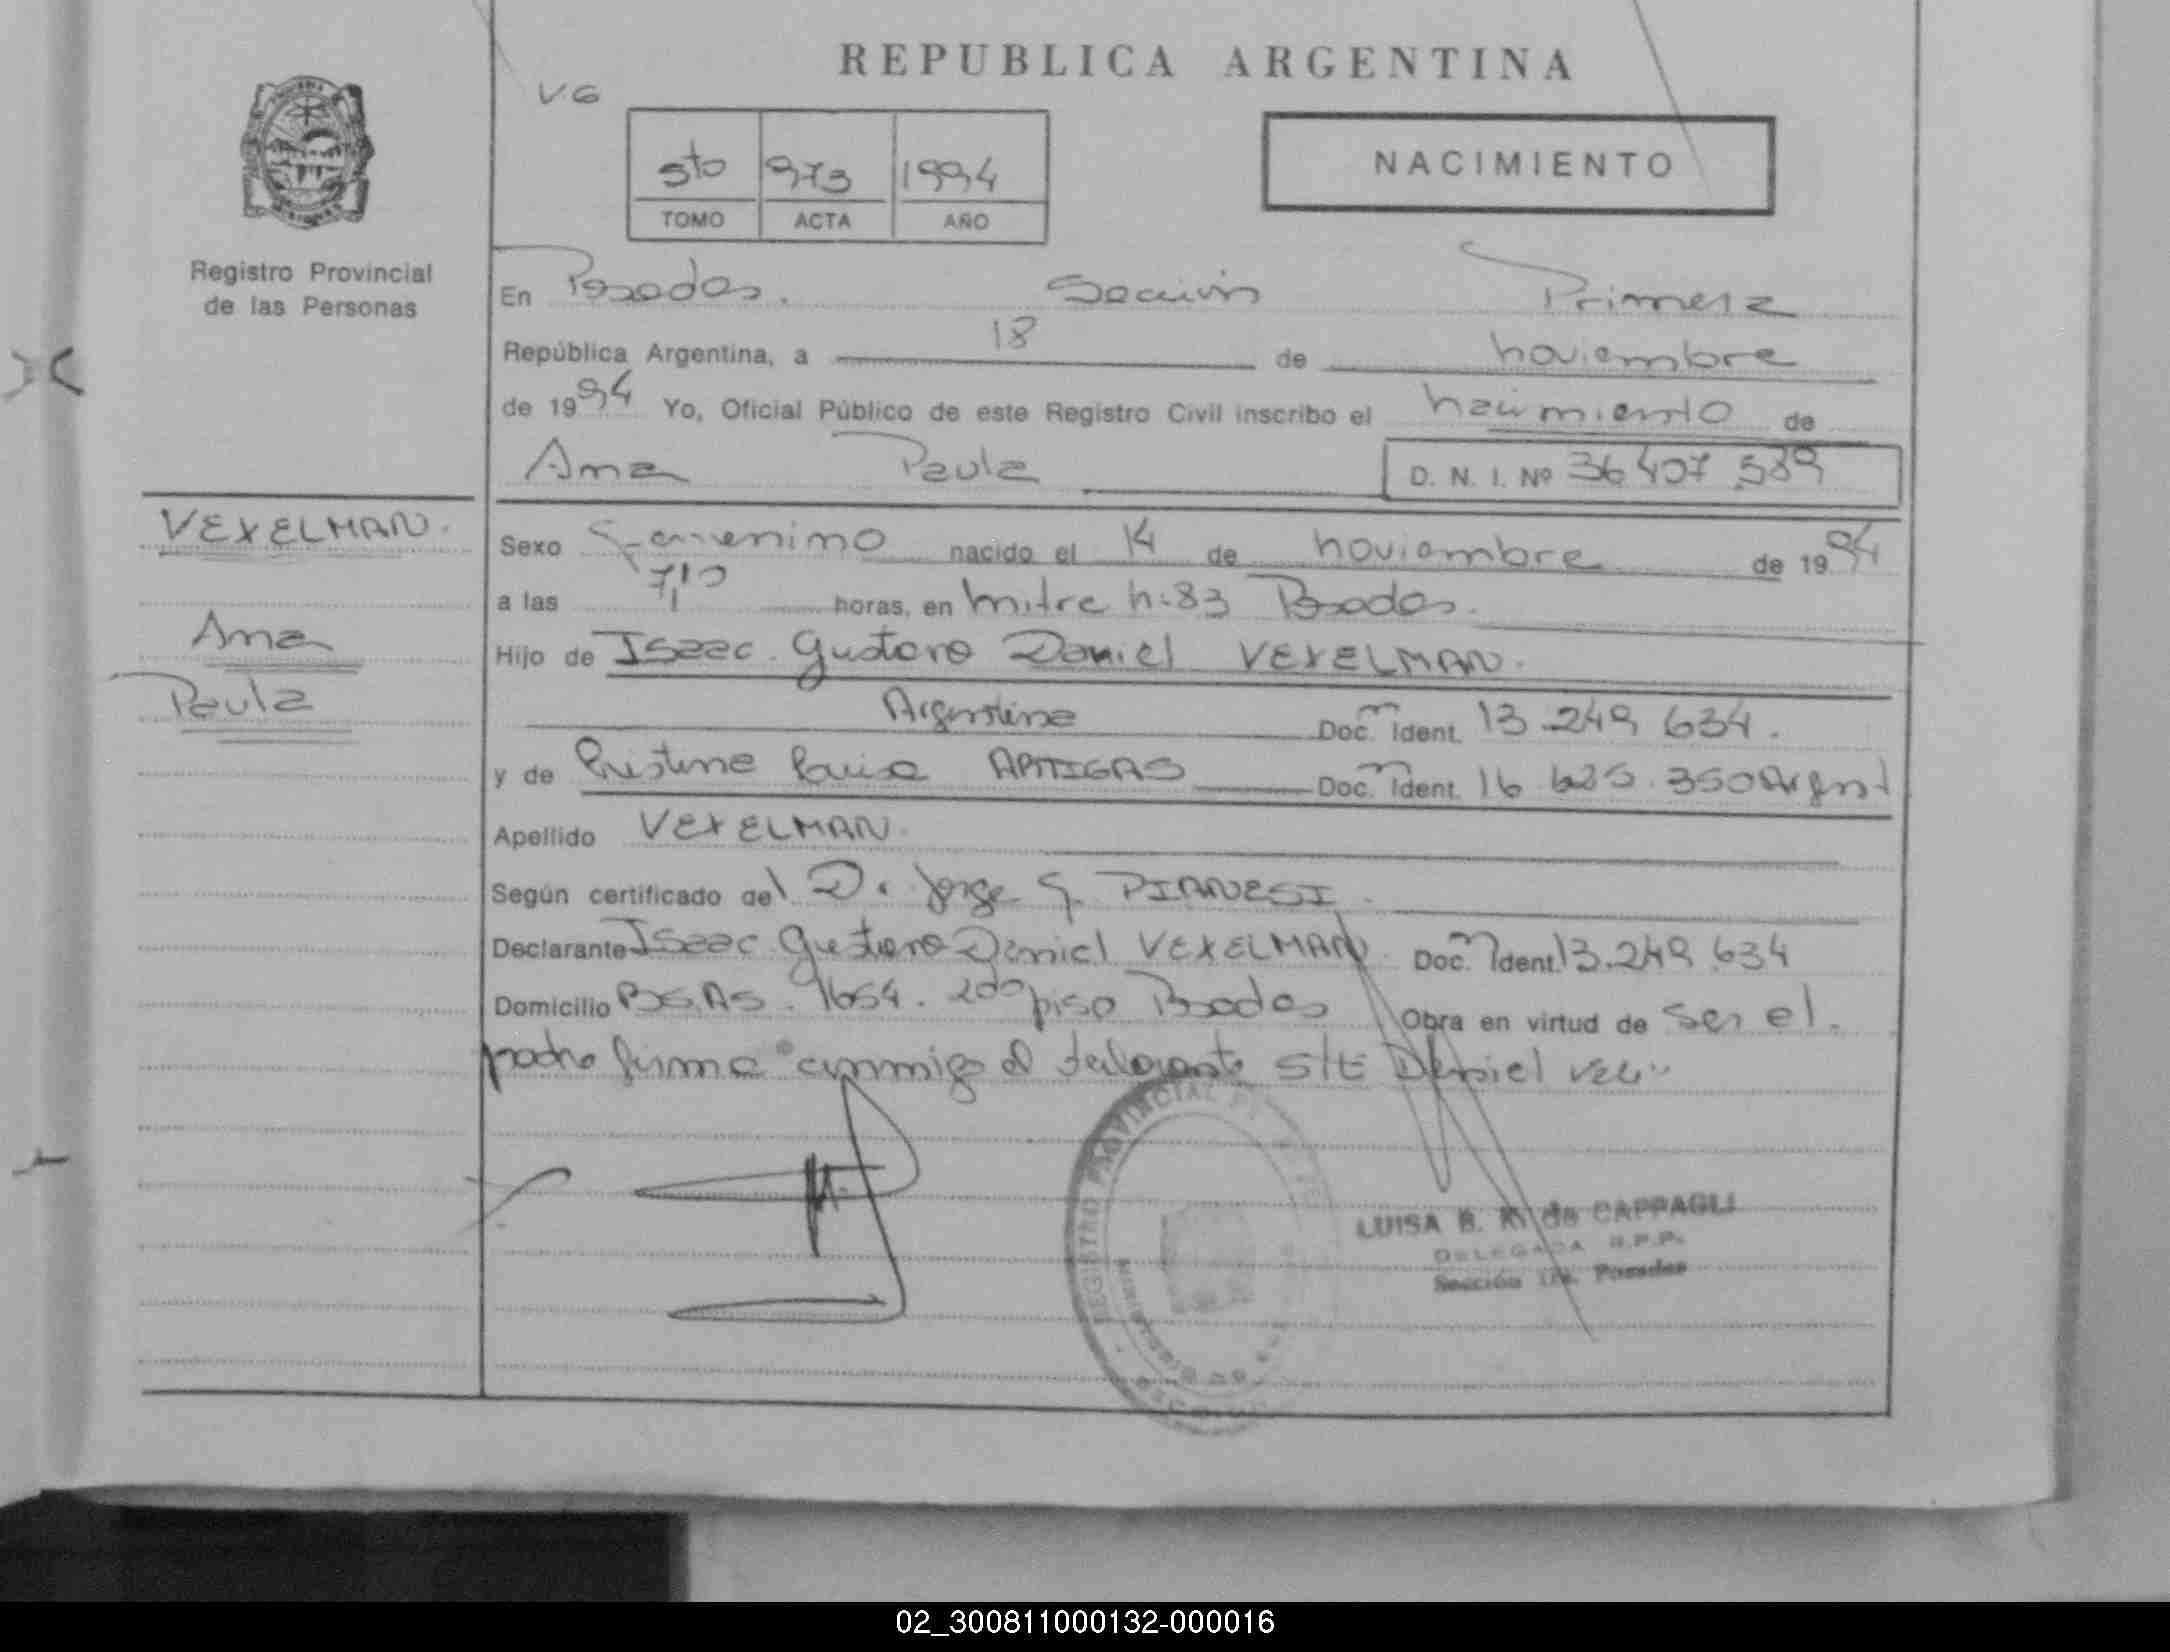 REPUBLICA ARGENTINA
V.G
5to 973 1994
TOMO ACTA AÑO
NACIMIENTO
Registro Provincial
de las Personas
En Posadas. Sección Primera
República Argentina, a 18 de noviembre
de 1994 Yo, Oficial Público de este Registro Civil inscribo el nacimiento de
Ana Paula D. N. I. Nº 36 407 589
VEXELMAN.
Ana
Paula
Sexo Femenino nacido el 14 de noviembre de 1994
a las 7,10 horas, en Mitre n: 83 Posadas.
Hijo de Isaac Gustavo Daniel VEXELMAN.
Argentina Doc. Ident. 13.249 634.
y de Cristina Luisa ARTIGAS Doc. Ident. 16 625.350 Argent
Apellido VEXELMAN.
Según certificado del Dr Jorge G. PIANESI.
Declarante Isaac Gustavo Daniel VEXELMAN. Doc. Ident. 13.249.634
Domicilio BS.AS. 1654. 2do piso Posadas Obra en virtud de ser el.
padre firma conmigo el declarante S/E Daniel
REGISTRO PROVINCIAL
MINISTERIO DE GOBIERNO
LUISA B. M. de CAPPAGLI
DELEGADA R.P.P.
Sección 1ra. Posadas
02_300811000132-000016